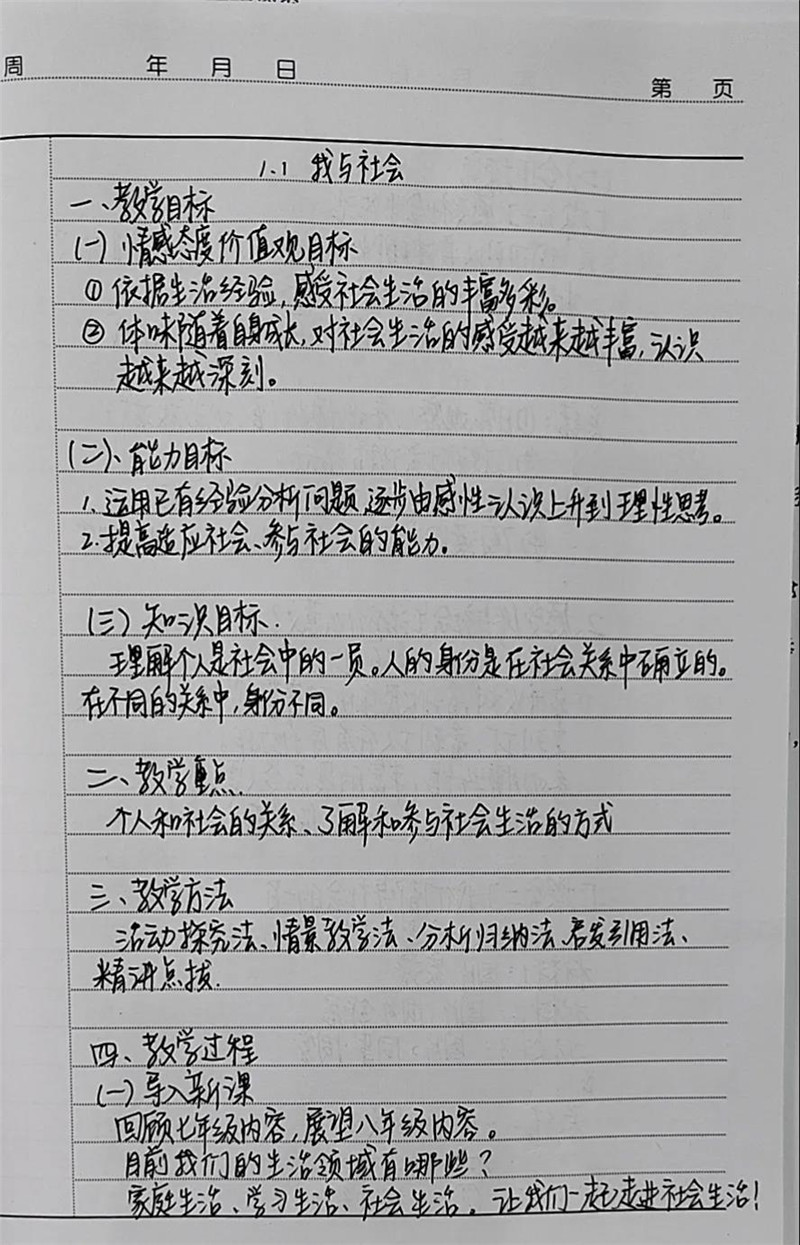 周 年 月 日
第 页
1.1 我与社会
一、教学目标
(一) 情感态度价值观目标
① 依据生活经验,感受社会生活的丰富多彩。
② 体味随着自身成长,对社会生活的感受越来越丰富,认识
越来越深刻。
(二)、能力目标
1. 运用已有经验分析问题,逐步由感性认识上升到理性思考。
2. 提高适应社会、参与社会的能力。
(三) 知识目标.
理解个人是社会中的一员。人的身份是在社会关系中确立的。
在不同的关系中,身份不同。
二、教学重点.
个人和社会的关系、了解和参与社会生活的方式
三、教学方法
活动探究法、情景教学法、分析归纳法、启发引用法、
精讲点拔.
四、教学过程
(一) 导入新课
回顾七年级内容,展望八年级内容。
目前我们的生活领域有哪些?
家庭生活、学习生活、社会生活。让我们一起走进社会生活!